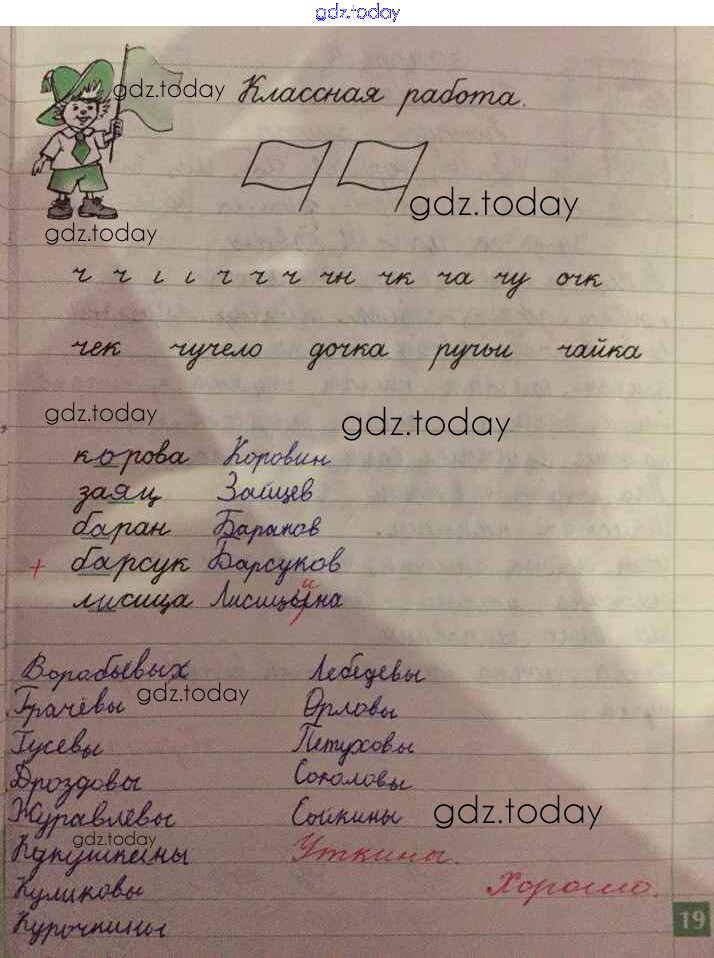 gdz.today
gdz.today Классная работа.
gdz.today
gdz.today
ч ч ι ι ч ч ч чн чк ча чу очк
чек чучело дочка ручьи чайка
gdz.today gdz.today
корова Коровин
заяц Зайцев
баран Баранов
+ барсук Барсуков
и
лисица Лисицына
Воробьевых Лебедевы
gdz.today
Грачёвы Орловы
Гусевы Петуховы
Дроздовы Соколовы
Журавлевы Сойкины gdz.today
gdz.today
Кукушкины Уткины.
Куликовы Хорошо.
Курочкины
19